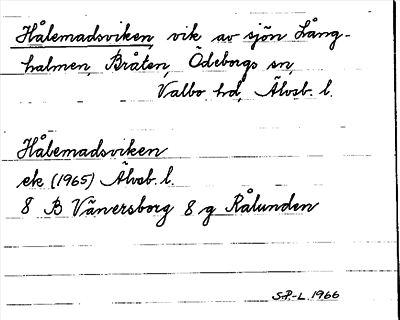 Hålemadsviken, vik av sjön Lång-
halmen, Bråten, Ödeborgs sn,
Valbo hd, Älvsb. l.
Hålemadsviken
ek (1965) Älvsb. l.
8 B Vänersborg 8 g Rålunden
S.P.-L. 1966